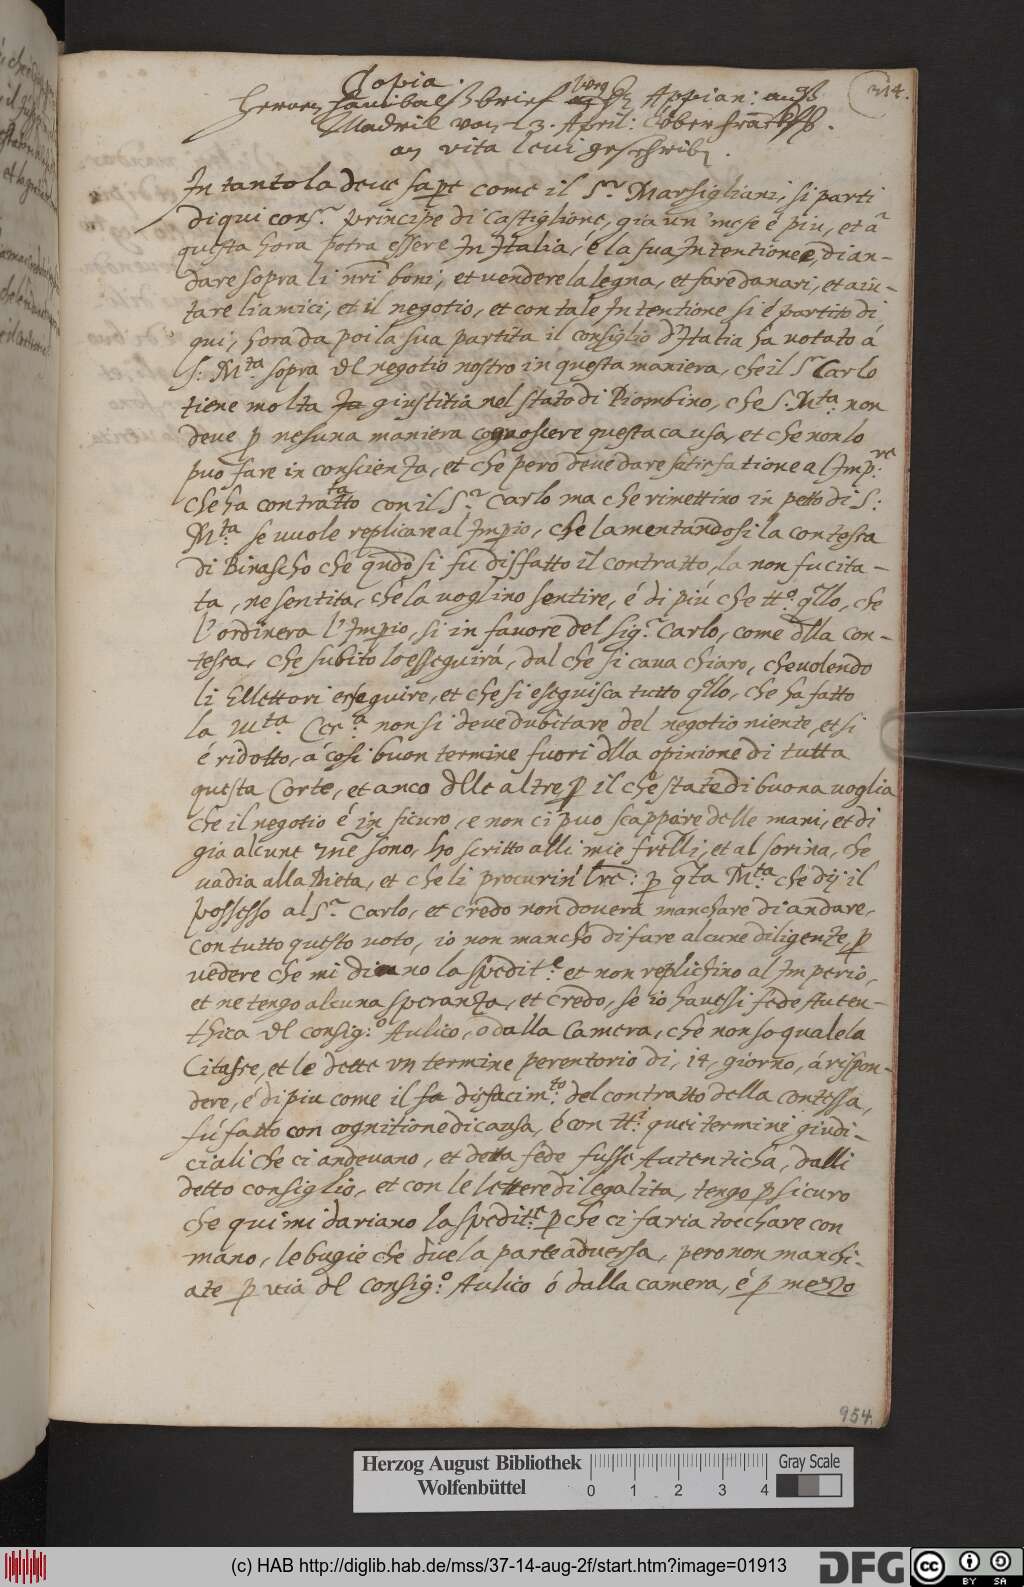 Copia.
314.
Herren Hanibals brief von H. Appian: auß
Madril von 13. April: über franckh.
an vita levi geschriben.
In tanto la deue sape come il S.r Marsigliani, si parti
di qui con S.r Principe di Castiglione, gia un'mese é piu, et á
questa hora potra essere In Italia, é la sua Intentione, di an-
dare sopra li nri boni, et uendere la legna, et fare danari, et aiu-
tare li amici, et il negotio, et con tale Intentione si é partito di
qui, hora da poi la sua partita il consiglio d'Italia ha uotato á
S: M.ta sopra del negotio nostro in questa maniera, che il S.r Carlo
tiene molta giustitia nel stato di Piombino, che S: M.ta non
deue p nesuna maniera cognoscere questa causa, et che non lo
puo fare in conscienza, et che pero deue dare satisfatione al Imp:re
che ha contratto con il S.r Carlo ma che rimettino in petto di S:
M.ta se uuole replicare al Impio, che lamentandosi la contessa
di Binascho che qndo si fu disfatto il contratto, la non fu cita-
ta, ne sentita, che la uoglino sentire, é di piú che tt.o qllo, che
l'ordinera l'Impio, si in fauore del sig.r Carlo, come dlla con-
tessa, che subito lo esseguirá, dal che si caua chiaro, che uolendo
li Elettori esseguire, et che si eseguisca tutto qllo, che ha fatto
la M.ta Ces.a non si deue dubitare del negotio niente, et si
é ridotto, á cosi buon termine fuori dlla opinione di tutta
questa Corte, et anco delle altre, p il che state di buona uoglia
che il negotio é in sicuro, e non ci puo scappare delle mani, et di
gia alcune me sono, ho scritto alli mie frelli, et al sorina, che
uadia alla Dieta, et che li procurin' lre: p qta M.ta che dij il
possesso al S.r Carlo, et credo non douerá manchare di andare,
con tutto questo uoto, io non mancho di fare alcune diligenze, p
uedere che mi diano la spedit.e et non replichino al Imperio,
et ne tengo alcuna speranza, et credo, se io hauessi fede auten-
thica del consig:o Aulico, o dalla Camera, che non so quale la
Citasse, et le dette un termine perentorio di, 14, giorno, á rispon-
dere, é di piu come il disfacim.to del contratto della contessa,
fú fatto con cognitione di causa, é con tt.i quei termini giudi-
ciali che ci andeuano, et detta fede fusse Autenticha, dalli
detto consiglio, et con le lettere di legalita, tengo p sicuro
che qui mi dariano la spedit.e p che ci faria tocchare con
mano, le bugie che diue la parte aduersa, pero non manchi-
ate p uia del consig.o Aulico ó dalla camera, é p mezzo
954.
Herzog August Bibliothek
Wolfenbüttel
0 1 2 3 4
Gray Scale
(c) HAB http://diglib.hab.de/mss/37-14-aug-2f/start.htm?image=01913
DFG
cc BY SA